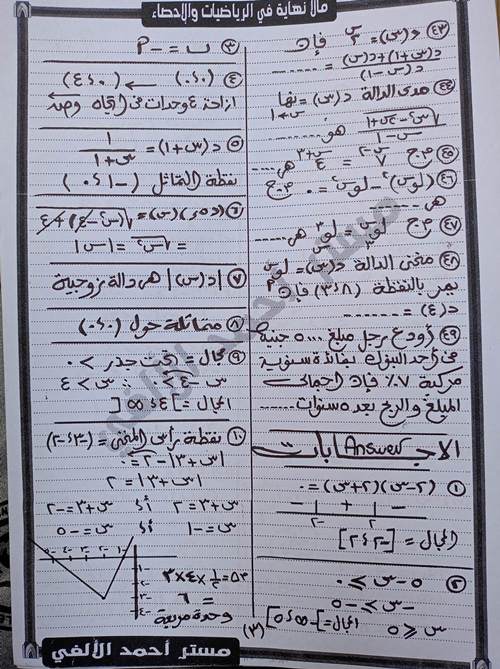 مالا نهاية في الرياضيات والاحصاء
٤٣ د(س) = ٢^س فإن
د(س+١) + د(س)
د(س-١) = ......
٤٤ مدى الدالة د(س) = نها
س←١
س٢ - ٢س + ١
س - ١ هو ......
٤٥ م.ح ٧^س-٢ = ٤^س+٣ هى ....
٤٦ (لوس)٢ - لوس٢ = ٠ م.ح
هى ......
٤٧ م.ح
هى ......
٤٨ منحنى الدالة د(س) = لو س
يمر بالنقطة (٨، ٣) فإن
د(٤) = ......
٤٩ أودع رجل مبلغ ٥٠٠٠ جنيه
فى أحد البنوك بفائدة سنوية
مركبة ٧٪ فإن اجمالى
المبلغ والربح بعد ٥ سنوات ......
الاجابات Answer
١ (٢-س)(٢+س) = ٠
- + -
-٢ ٢
المجال = [-٢، ٢]
٢ ٥ - س ≥ ٠
-س ≥ -٥
س ≤ ٥ المجال = ]-∞، ٥]
٣ ب = -٢
٤ (٠،٠) ← (٤،٠)
ازاحة ٤ وحدات فى اتجاه وصَ
٥ د(س+١) = ١
س+١
نقطة التماثل (-١، ٠)
٦
= √س٢ = |س|
٧ |د(س)| هى دالة زوجية
٨ متماثلة حول (٠،٠)
٩ مجال = تحت جذر > ٠
س-٤ > ٠ ∴ س > ٤
المجال = ]٤، ∞[
١٠ نقطة رأس المنحنى = (-٣، -٢)
|س+٣| - ٢ = ٠
|س+٣| = ٢
س+٣ = ٢ أو س+٣ = -٢
س = -١ أو س = -٥
-٥ -٤ -٣ -٢ -١
-١
-٢
-٣
-٤
= ٦
وحدة مربعة
(٣)
مستر أحمد الألفي